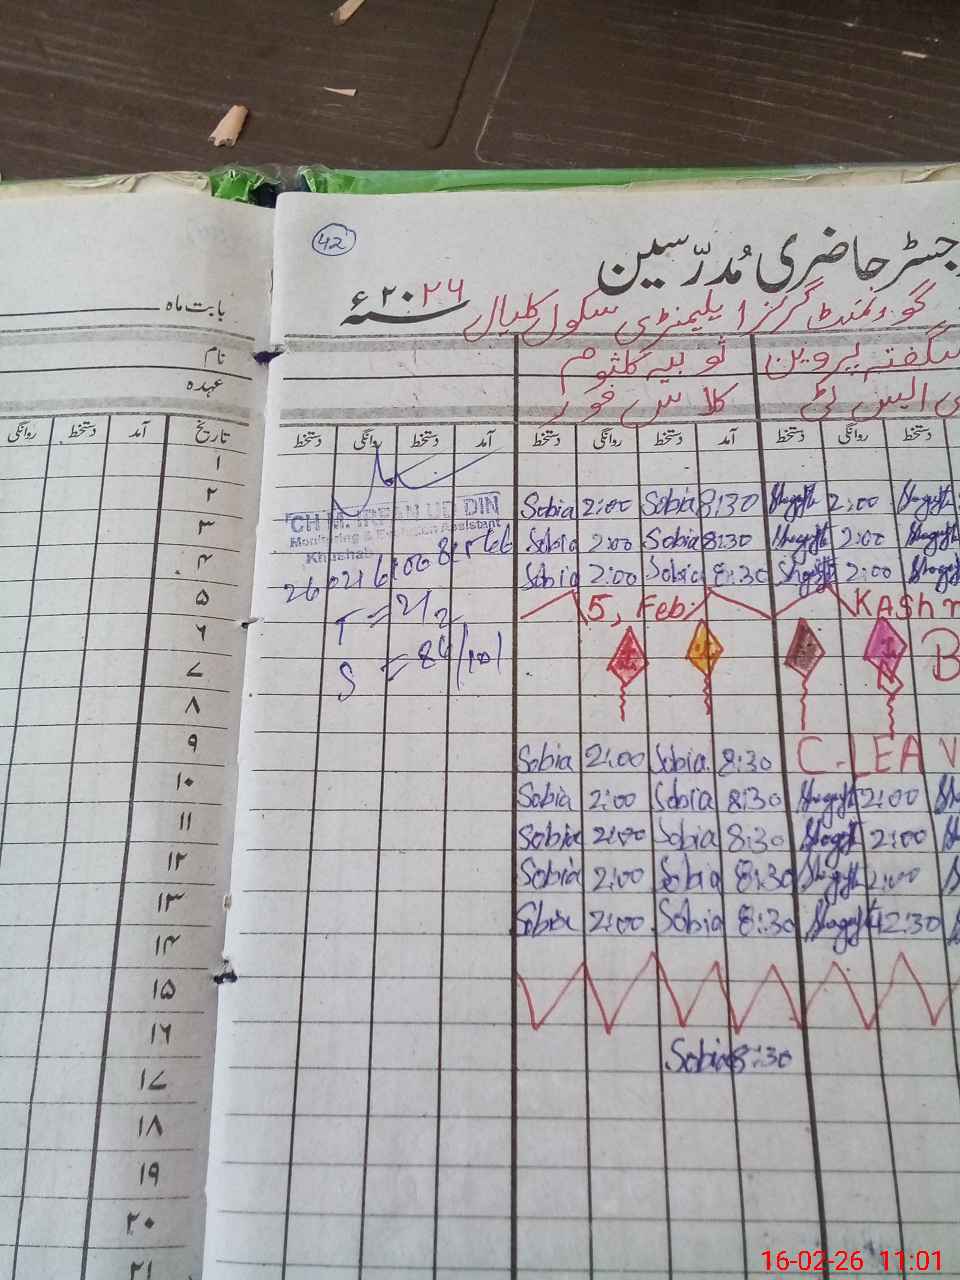 42
رجسٹر حاضری مُدرّسین
سنہ ۲۰۲۶ء
گورنمنٹ گرلز ایلیمنٹری سکول کلیال
بابت ماہ
نام
ثوبیہ کلثوم
شگفتہ پروین
عہدہ
کلاس فور
ای ایس ٹی
روانگی دستخط آمد تاریخ
دستخط روانگی دستخط آمد دستخط روانگی دستخط آمد دستخط روانگی دستخط
۱
۲
۳
۴
۵
۶
۷
۸
۹
۱۰
۱۱
۱۲
۱۳
۱۴
۱۵
۱۶
۱۷
۱۸
۱۹
۲۰
۲۱
CH M. IRFAN UD DIN
Monitoring & Evaluation Assistant
Khushab
T = 2/2
S = 86/101
Sobia 2:00 Sobia 8:30 Shagufta 2:00 Shagufta
Sobia 2:00 Sobia 8:30 Shagufta 2:00 Shagufta
Sobia 2:00 Sobia 8:30 Shagufta 2:00 Shagufta
5, Feb: Kashm
B
Sobia 2:00 Sobia 8:30 C-LEAV
Sobia 2:00 Sobia 8:30 Shagufta 2:00 Sh
Sobia 2:00 Sobia 8:30 Shagufta 2:00
Sobia 2:00 Sobia 8:30 Shagufta 2:00
Sobia 2:00 Sobia 8:30 Shagufta 12:30
Sobia 8:30
16-02-26 11:01